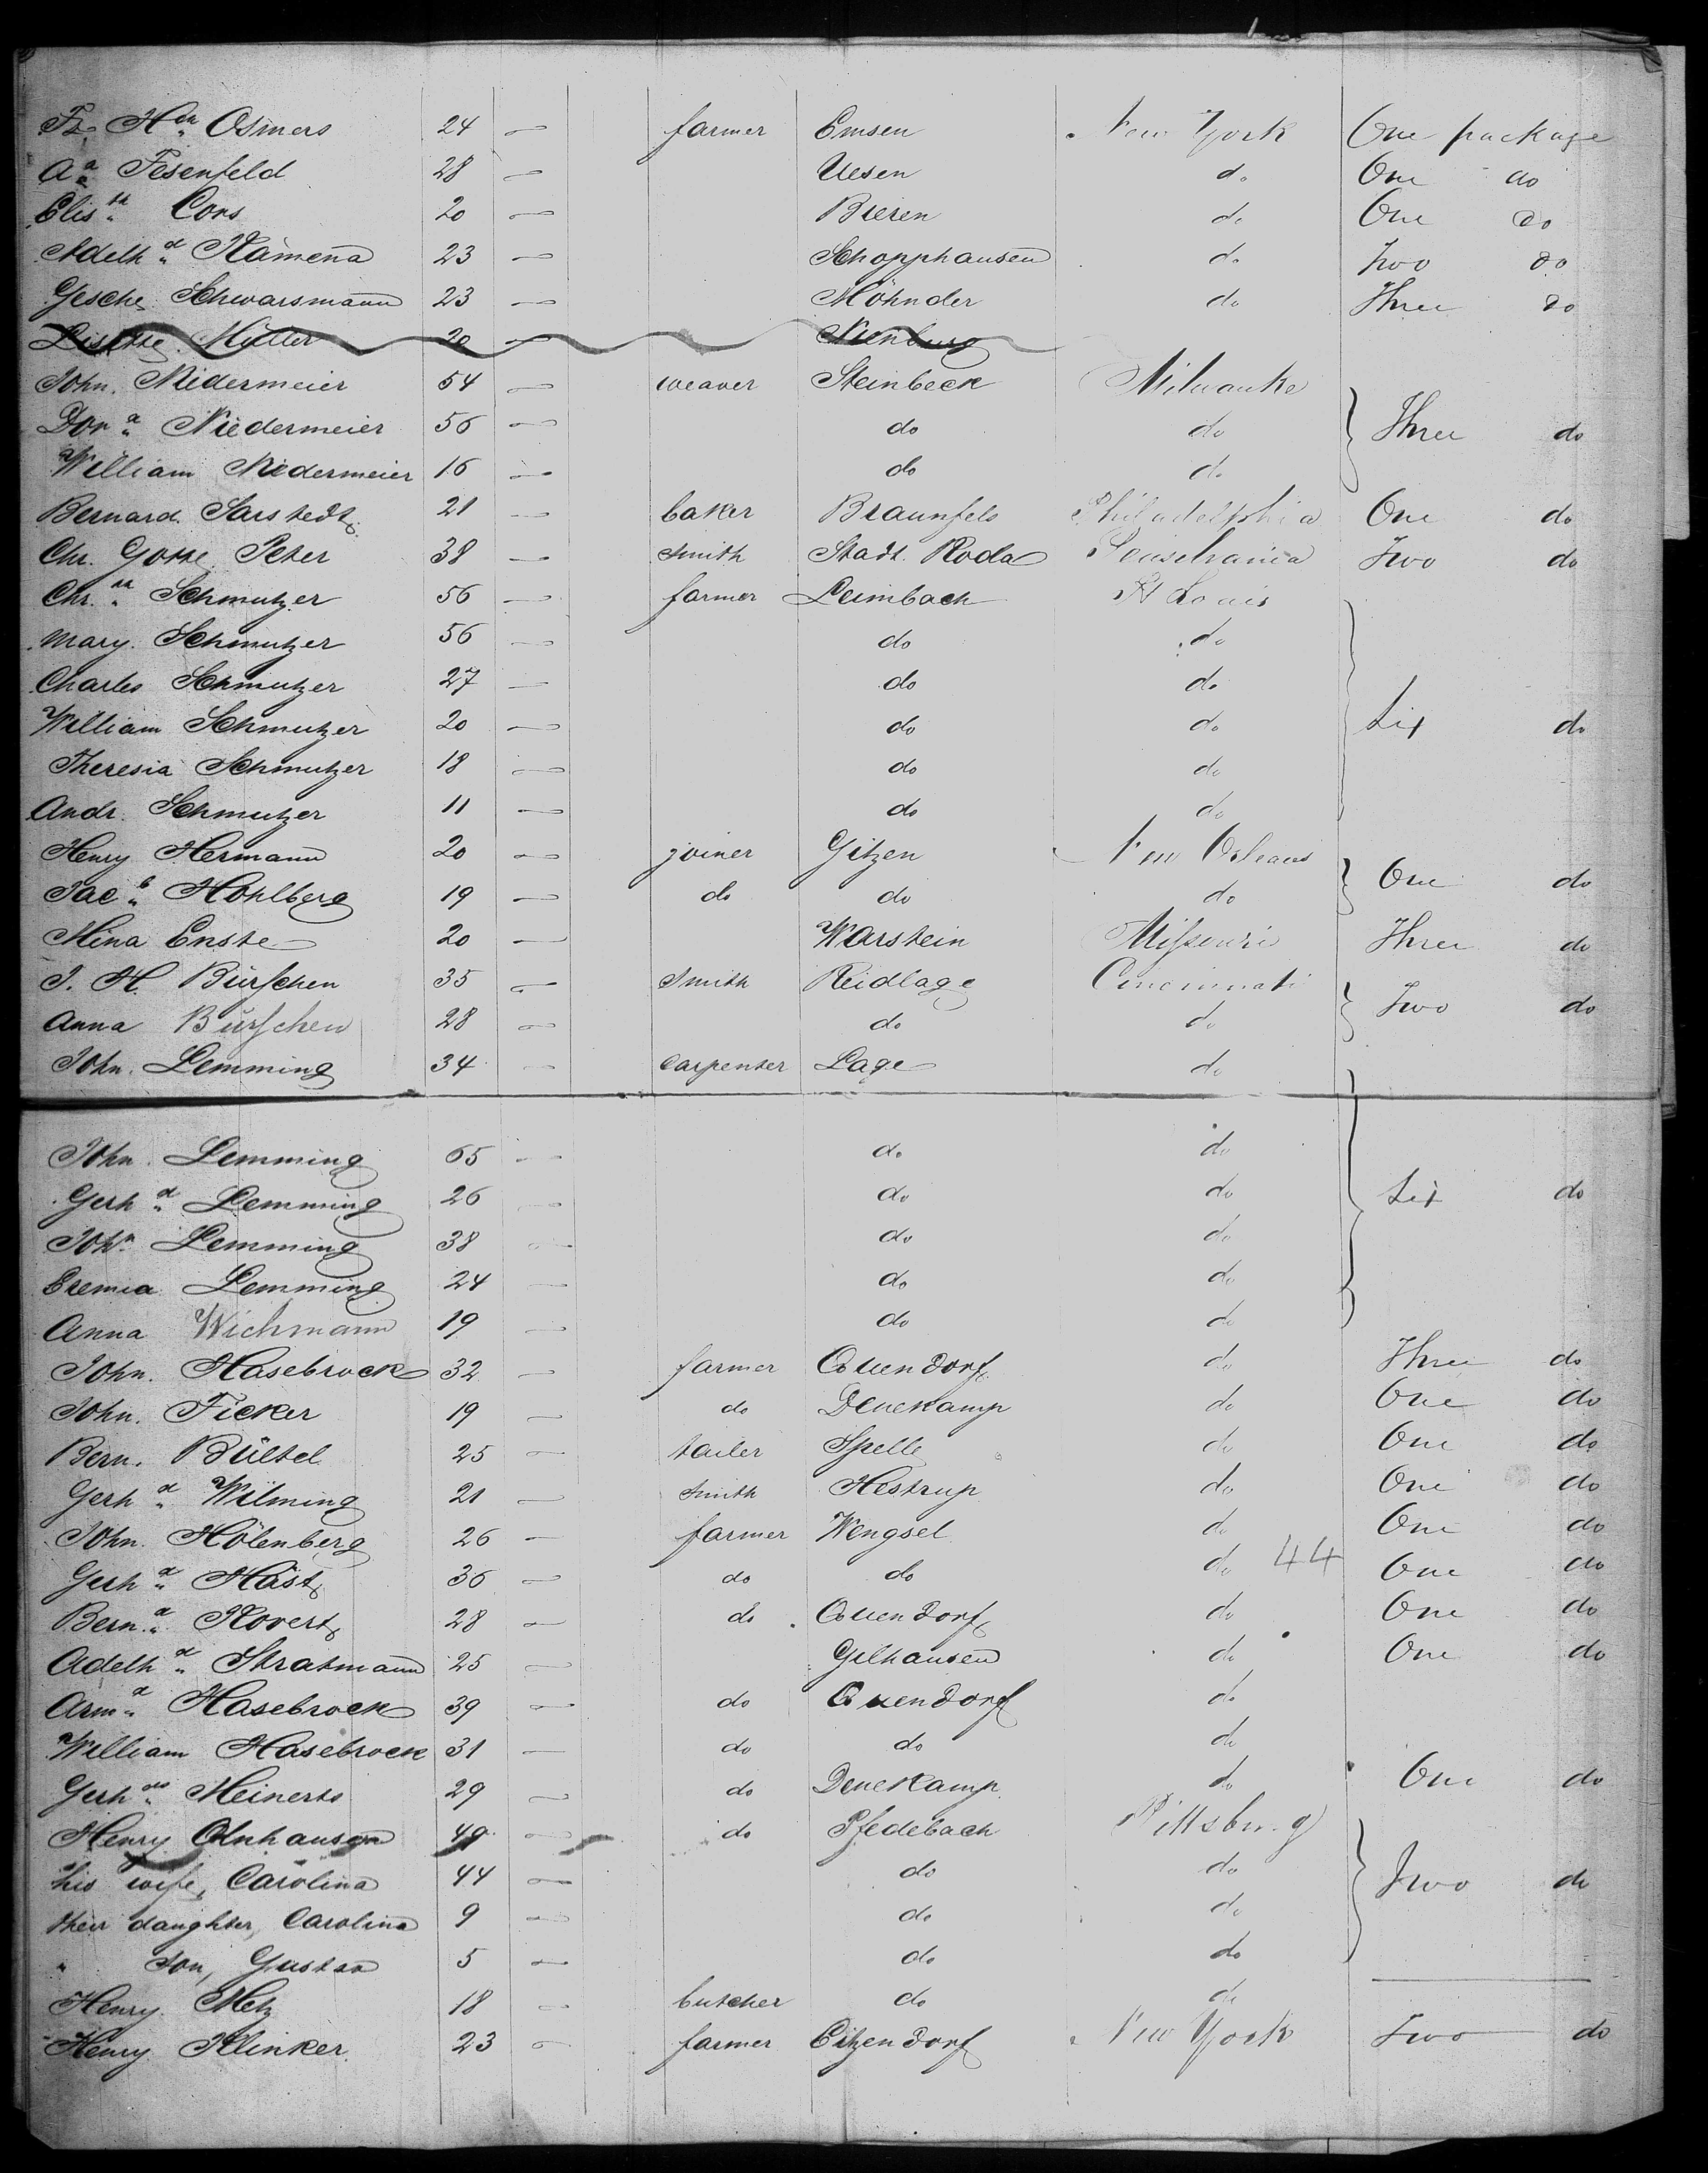 Fr. Hch Osmers 24 — farmer Emsen New York One package
Aa Fesenfeld 28 — Uesen do One do
Elisth Cors 20 — Bieren do One do
Adelhd Kamena 23 — Schopphausen do Two do
Gesche Schwarsmann 23 — Möhnder do Three do
Lisette Müller 20 — Nienburg
John. Niedermeier 54 — weaver Steinbeck Milwauke
Dora Niedermeier 56 — do do Three do
William Niedermeier 16 — do do
Bernard. Sarstedt 21 — baker Braunfels Philadelphia One do
Chr. Peter 38 — smith Stadt Roda Pensilvania Two do
Chr. Schmutzer 56 — farmer Leimbach St Louis
Mary. Schmutzer 56 — do do
Charles Schmutzer 27 — do do
William Schmutzer 20 — do do Six do
Theresia Schmutzer 18 — do do
Andr. Schmutzer 11 — do do
Henry Hermann 20 — joiner Gitzen New Orleans
Jacb Hohlberg 19 — do do do One do
Mina Enste 20 — Warstein Missouri Three do
J. H. Bürschen 35 — smith Reidlage Cincinnati
Anna Bürschen 28 — do do Two do
John. Lemming 34 — carpenter Lage do
John. Lemming 65 — do do
Gerhd Lemming 26 — do do Six do
John Lemming 38 — do do
Eremia Lemming 24 — do do
Anna Wichmann 19 — do do
John. Hasebrock 32 — farmer Quendorf do Three do
John. Ficker 19 — do Denekamp do One do
Bern. Bültel 25 — tailer Spelle do One do
Gerhd Wilming 21 — smith Hestrup do One do
John. Hölenberg 26 — farmer Wengsel do One do
Gerhd Hast 36 — do do do 44 One do
Bernd Kovert 28 — do Quendorf do One do
Adelhd Stratmann 25 — Gilhausen do One do
Arma Hasebrock 39 — do Quendorf do
William Hasebrock 31 — do do do
Gerh Meinerts 29 — do Denekamp do One do
Henry Olnhausen 49 — do Pfedebach Pittsburg
his wife, Carolina 44 — do do Two do
their daughter, Carolina 9 — do do
" son, Gustav 5 — do do
Henry. Metz 18 — butcher do do —
Henry Klinker 23 — farmer Eitzendorf New York Two do